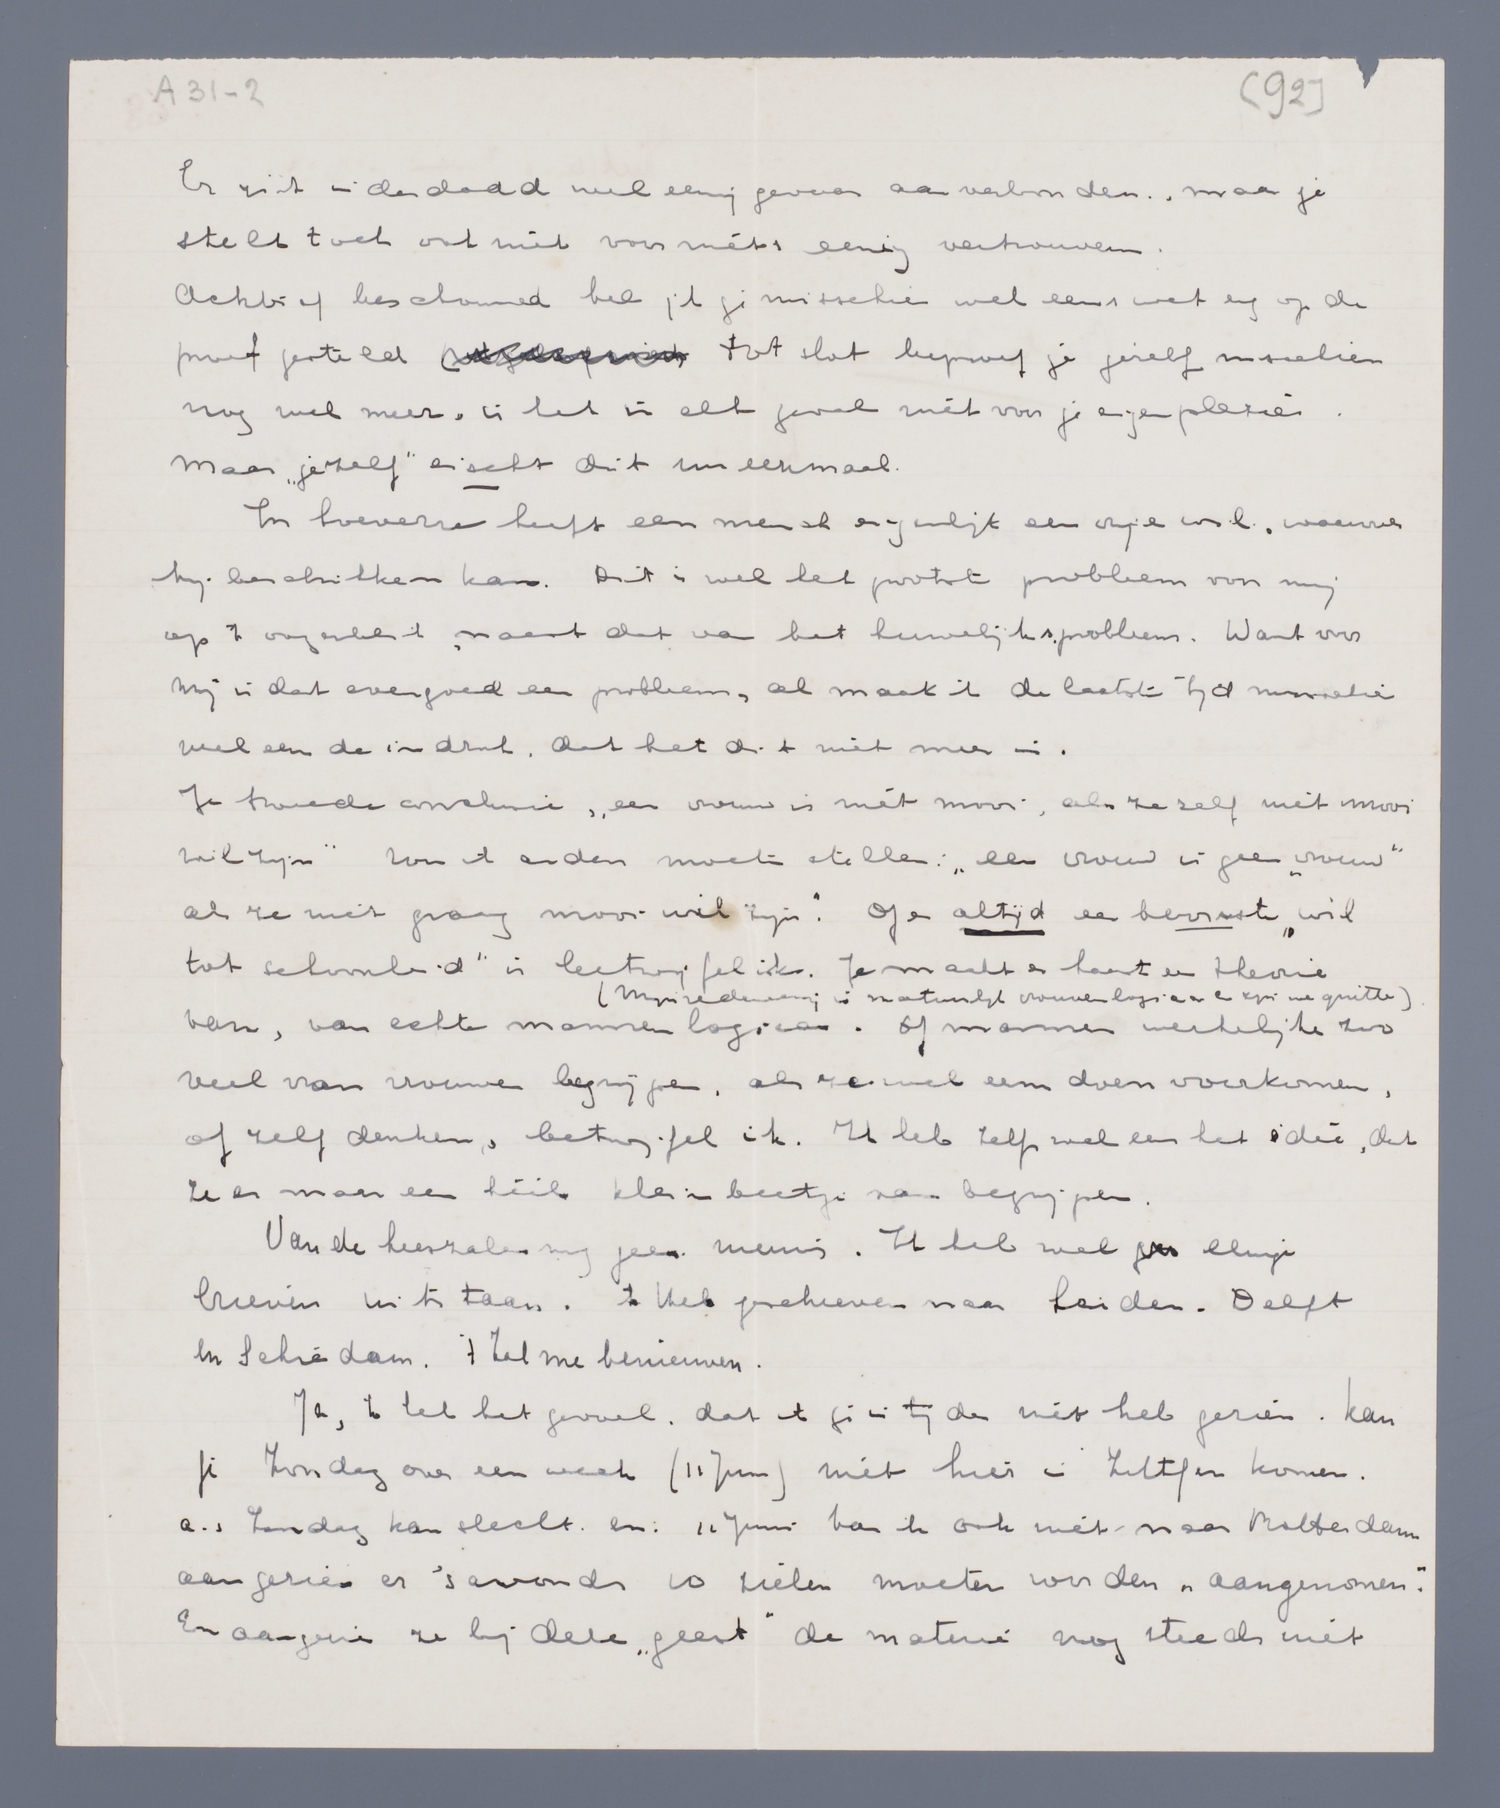 A 31-2
(92)
Er zit inderdaad wel eenig gevaar aan verbonden, maar je
stelt toch ook niet voor niets eenig vertrouwen.
Achteraf beschouwd heb ik je misschien wel eens wat erg op de
proef gesteld tot slot beproef je jezelf misschien
nog wel meer, is het in elk geval niet voor je eigen plezier.
Maar „jezelf" eischt dit nu eenmaal.
In hoeverre heeft een mensch eigenlijk een vrije wil, waarover
hij beschikken kan. Dit is wel het grootste probleem voor mij
op 't oogenblik, naast dat van het huwelijksprobleem. Want voor
mij is dat evengoed een probleem, al maak ik de laatste tijd misschien
wel een de indruk, dat het dit niet meer is.
Je tweede conclusie, „een vrouw is niet mooi, als ze zelf niet mooi
wil zijn" zou ik anders moeten stellen: „een vrouw is geen „vrouw"
als ze niet graag mooi wil zijn". Of er altijd een bewuste „wil
tot schoonheid" is betwijfel ik. Je maakt er haast een theorie
(Mijn redeneering is natuurlijk vrouwenlogica en zijn we quitte)
van, van echte mannenlogica. Of mannen werkelijk zoo
veel van vrouwen begrijpen, als ze wel eens doen voorkomen,
of zelf denken, betwijfel ik. Ik heb zelf wel eens het idée, dat
ze er maar een héél klein beetje van begrijpen.
Van de leeszalen nog geen nieuws. Ik heb wel eenige
brieven uitstaan. Ik heb geschreven naar Leiden. Delft
en Schiedam. 't Zal me benieuwen.
Ja, ik heb het gevoel, dat ik je in tijden niet heb gezien. Kan
je Zondag over een week (11 Juni) niet hier in Zutfen komen.
a.s. Zondag kan slecht. en: 11 Juni kan ik ook niet naar Rotterdam
aangezien er 's avonds 10 zielen moeten worden „aangenomen".
En aangezien ze bij deze „geest" de materie nog steeds niet